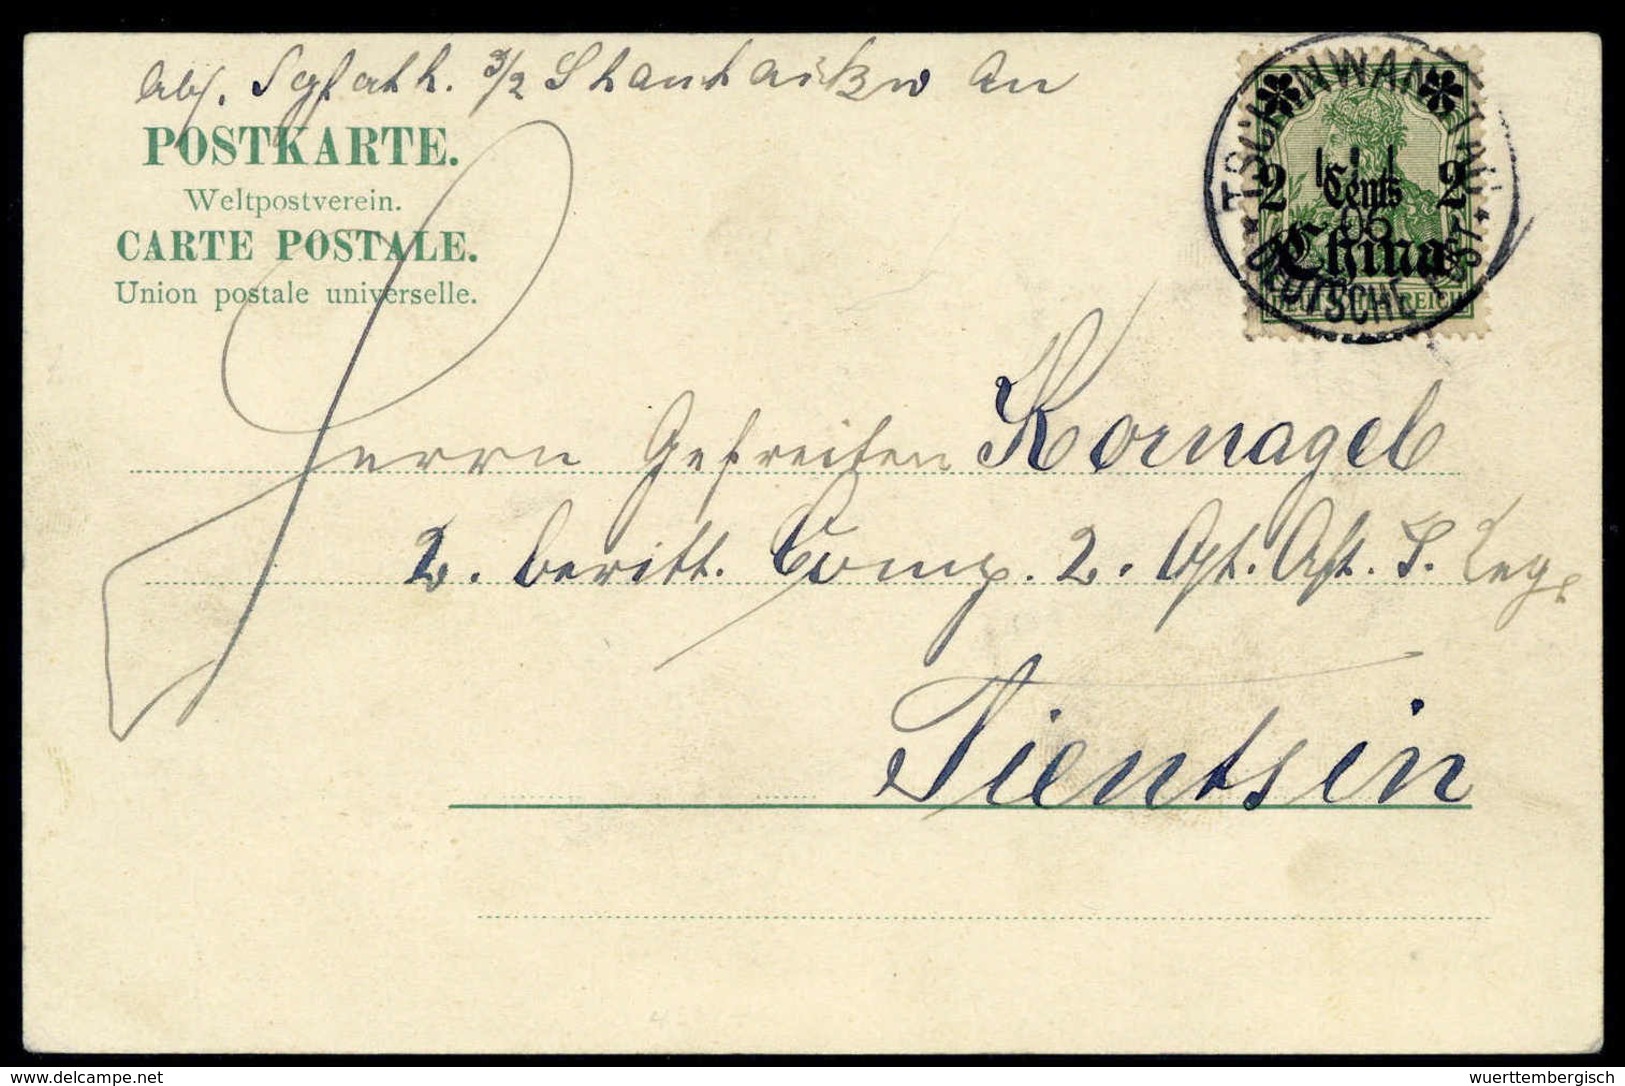 Abs. Sgfath. 3/2 Shanhaikw An
POSTKARTE.
Weltpostverein.
CARTE POSTALE.
Union postale universelle.
TSCHINWANGTAU
2 Cents 2
1.1
06
China
DEUTSCHE POST
REICH
Herrn Gefreiten Kornagel
2. beritt. Comp. 2. Ost. As. I. Reg.
Tientsin
delcampe.net
wuerttembergisch